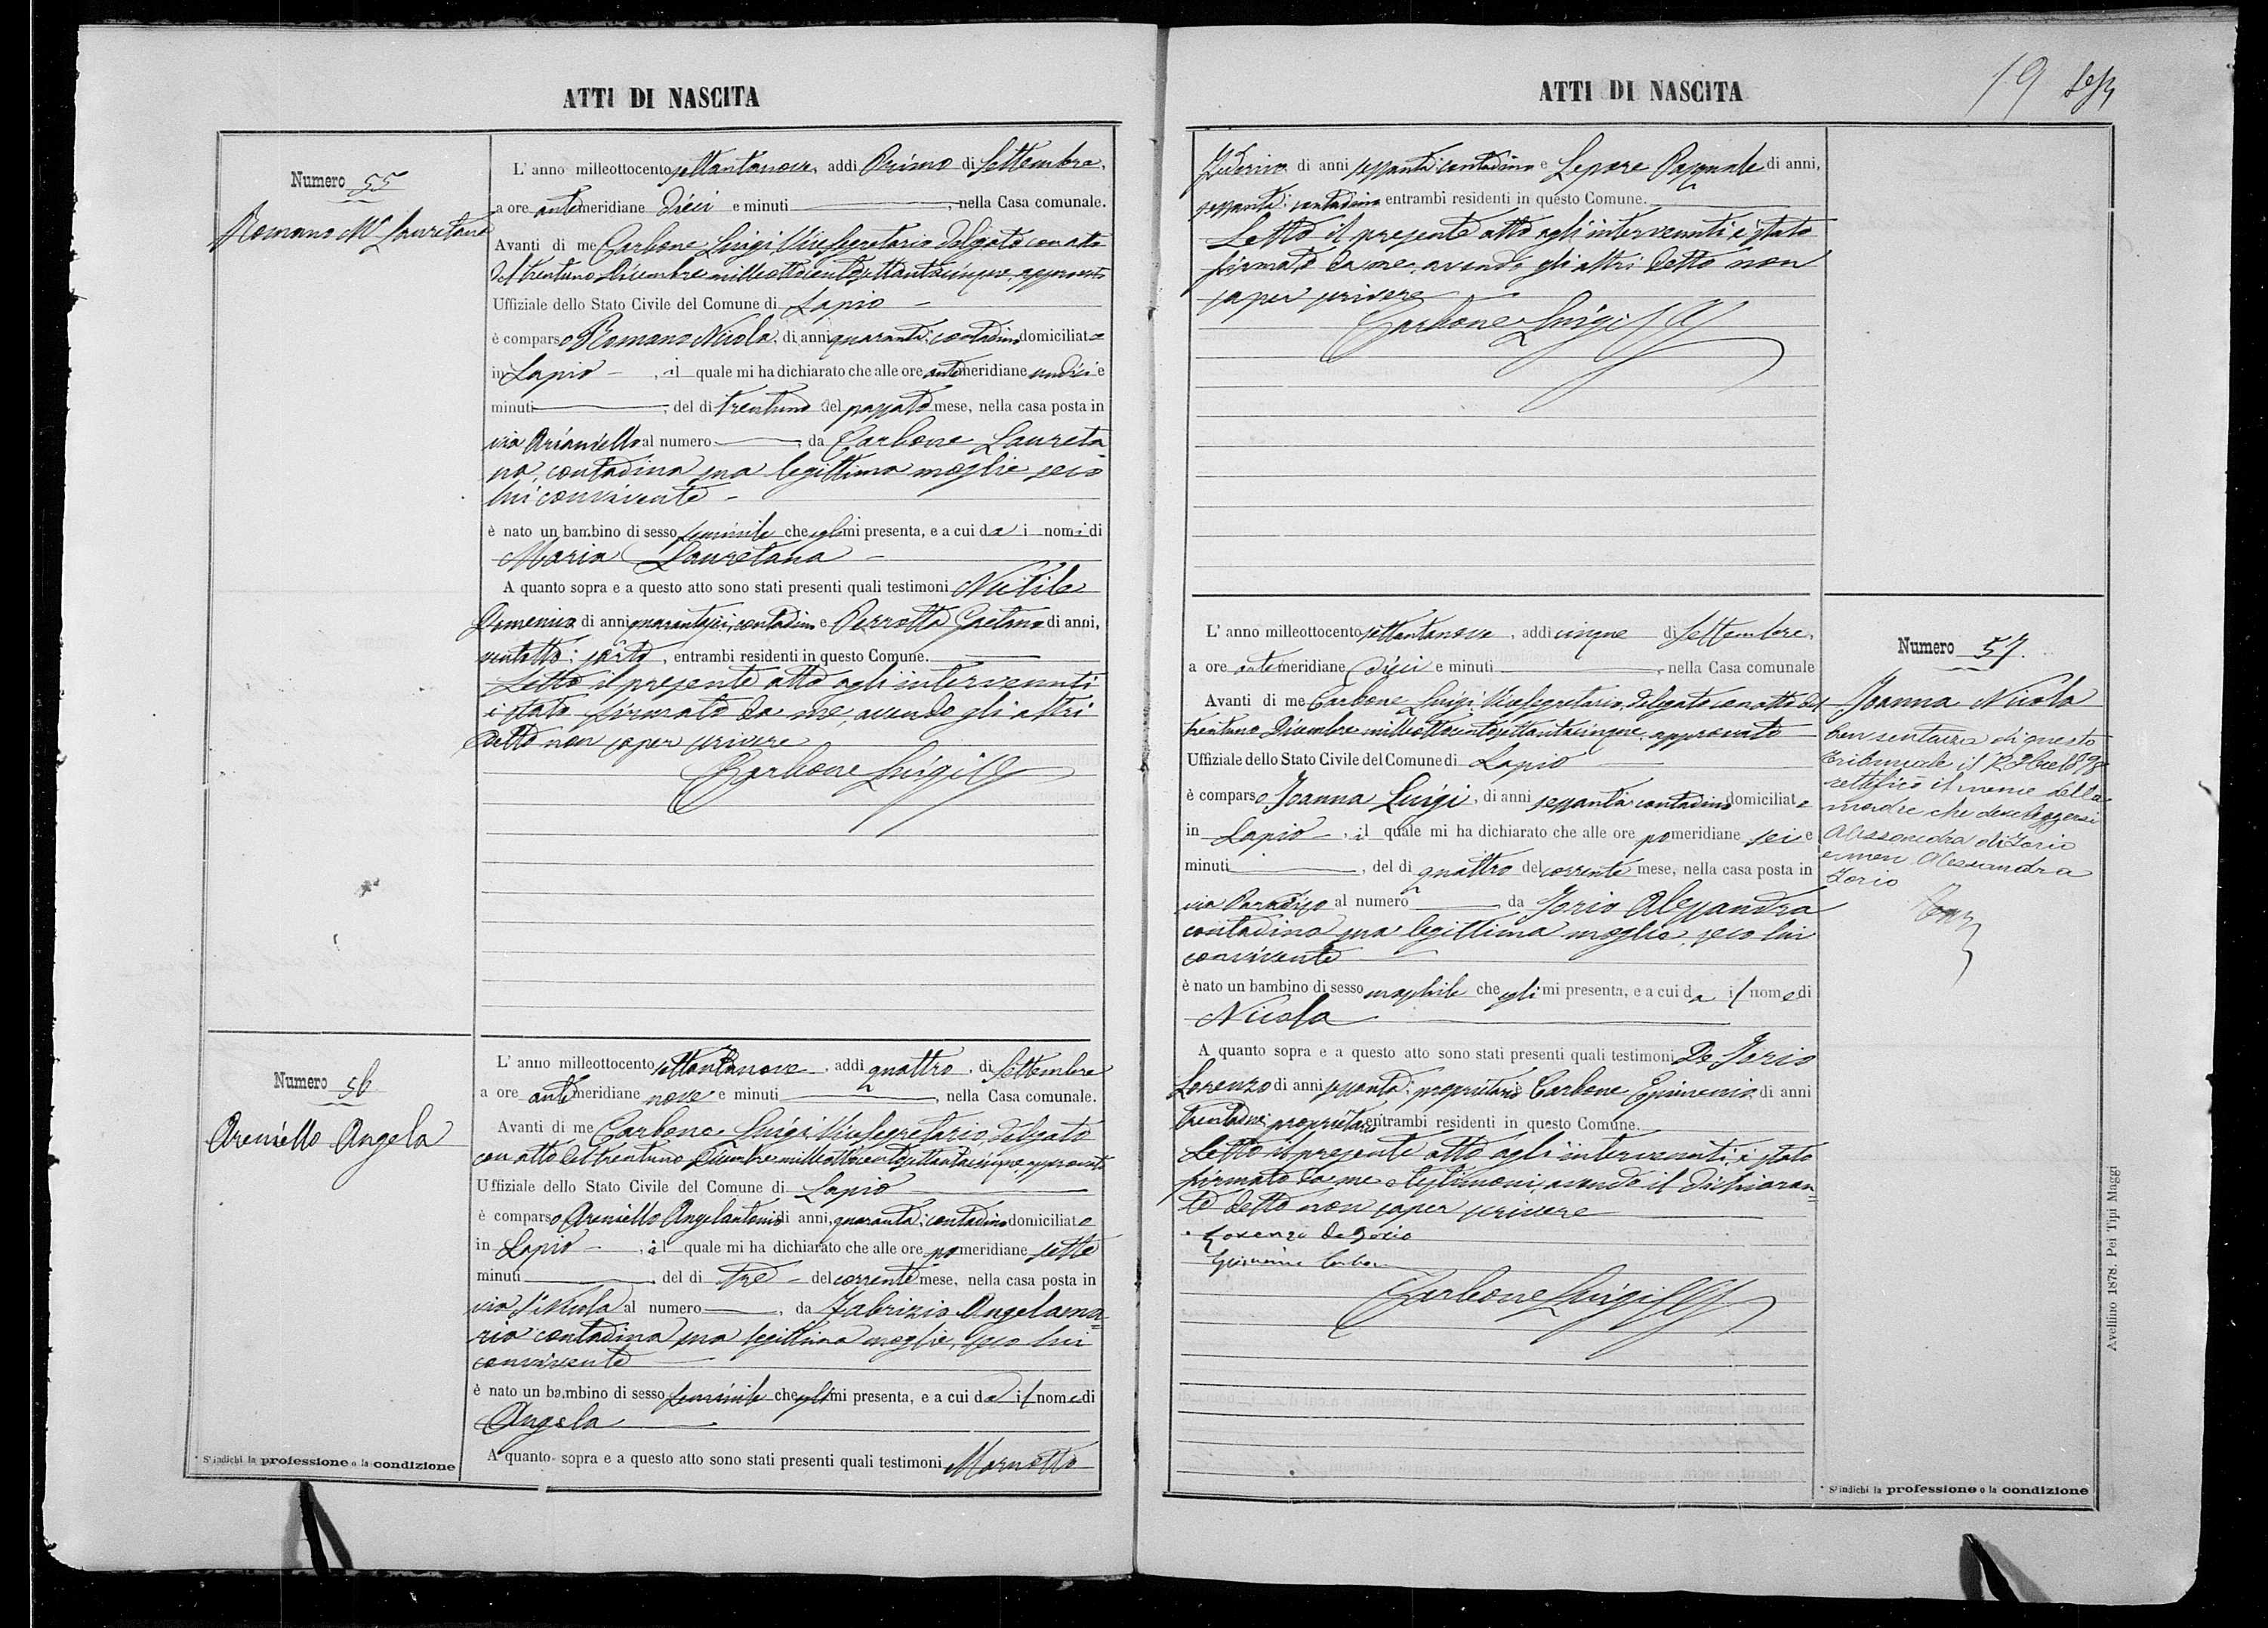 ATTI DI NASCITA
Numero 55
Romano Mª Lauretana
L'anno milleottocentosettantanove, addì Primo di Settembre,
a ore antimeridiane dieci e minuti, nella Casa comunale.
Avanti di me Carbone Luigi Vicesegretario delegato con atto
del trentuno Dicembre milleottocentosettantacinque, approvato
Uffiziale dello Stato Civile del Comune di Lapio
è comparso Romano Nicola, di anni quaranta, contadino domiciliato
in Lapio, il quale mi ha dichiarato che alle ore antimeridiane undici e
minuti, del dì trentuno del passato mese, nella casa posta in
via Arianiello al numero, da Carbone Laureta
na, contadina sua legittima moglie seco
lui convivente
è nato un bambino di sesso feminile che egli mi presenta, e a cui da i nomi di
Maria Lauretana
A quanto sopra e a questo atto sono stati presenti quali testimoni
Domenico di anni quarantasei, contadino e Perrotta Gaetano di anni,
ventotto; sarto, entrambi residenti in questo Comune.
Letto il presente atto agli intervenuti
è stato firmato da me, avendo gli altri
detto non saper scrivere
Carbone Luigi
Numero 56
Areniello Angela
L'anno milleottocentosettantanove, addì quattro, di Settembre
a ore antimeridiane nove e minuti, nella Casa comunale.
Avanti di me Carbone Luigi Vicesegretario, delegato
con atto del trentuno Dicembre milleottocentosettantacinque, approvato
Uffiziale dello Stato Civile del Comune di Lapio
è comparso Areniello Angelantonio di anni, quaranta; contadino domiciliato
in Lapio, il quale mi ha dichiarato che alle ore pomeridiane sette
minuti, del dì tre del corrente mese, nella casa posta in
via S. Nicola al numero, da Fabrizio Angelama=
ria contadina sua legittima moglie, seco lui
convivente
è nato un bambino di sesso feminile che egli mi presenta, e a cui da il nome di
Angela
A quanto sopra e a questo atto sono stati presenti quali testimoni
* Si indichi la professione o la condizione
ATTI DI NASCITA
19
di anni sessanta contadino e Lepore Pasquale di anni,
sessanta; contadino entrambi residenti in questo Comune.
Letto il presente atto agli intervenuti è stato
firmato da me, avendo gli altri detto non
saper scrivere
Carbone Luigi
Numero 57.
Joanna Nicola
Con sentenza di questo
Tribunale il
rettificò il nome della
madre che deve leggersi
Alessandra di Iorio
e non Alessandra
Iorio
L'anno milleottocentosettantanove, addì cinque di Settembre,
a ore antimeridiane dieci e minuti, nella Casa comunale
Avanti di me Carbone Luigi Vicesegretario, delegato con atto del
trentuno Dicembre milleottocentosettantacinque, approvato
Uffiziale dello Stato Civile del Comune di Lapio
è comparso Joanna Luigi, di anni sessanta contadino domiciliato
in Lapio, il quale mi ha dichiarato che alle ore pomeridiane sei e
minuti, del dì quattro del corrente mese, nella casa posta in
via Paradiso al numero da Jorio Alessandra
contadina sua legittima moglie, seco lui
convivente
è nato un bambino di sesso maschile che egli mi presenta, e a cui da il nome di
Nicola
A quanto sopra e a questo atto sono stati presenti quali testimoni De Jorio
Lorenzo di anni sessanta; proprietario e Carbone Epimenio di anni
trentadue; proprietario entrambi residenti in questo Comune.
Letto il presente atto agli intervenuti, è stato
firmato da me e testimoni, avendo il dichiaran=
te detto non saper scrivere
Lorenzo de Jorio
Epimenio Carbone
Carbone Luigi
* Si indichi la professione o la condizione
Avellino 1878. Pei Tipi Maggi